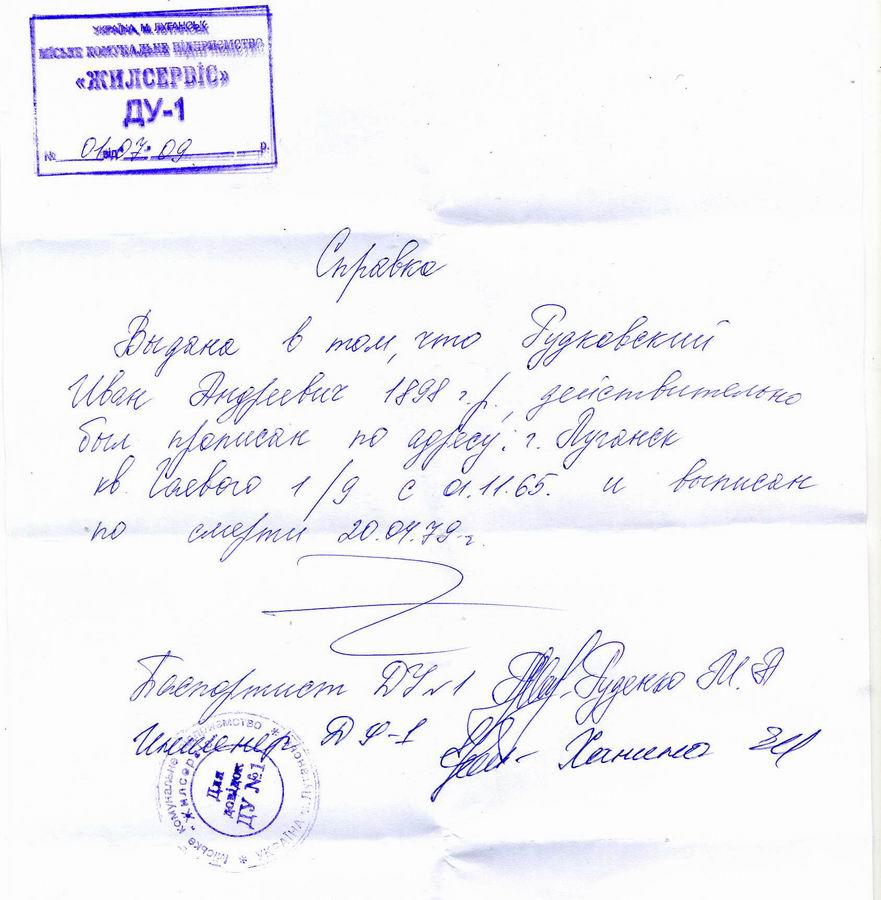 УКРАЇНА, М. ЛУГАНСЬК
МІСЬКЕ КОМУНАЛЬНЕ ПІДПРИЄМСТВО
«ЖИЛСЕРВІС»
ДУ-1
№ 01 від 07. 09 р.
Справка
Выдана в том, что Гудковский
Иван Андреевич 1898 г.р., действительно
был прописан по адресу: г. Луганск
кв. Гаевого 1/9 с 01.11.65. и выписан
по смерти 20.04.79 г.
Паспортист ДУ №1 Руденко М.А
Инженер ДУ-1 Ханина
Міське комунальне підприємство
"Жилсервіс"
УКРАЇНА
Для
довідок
ДУ №1